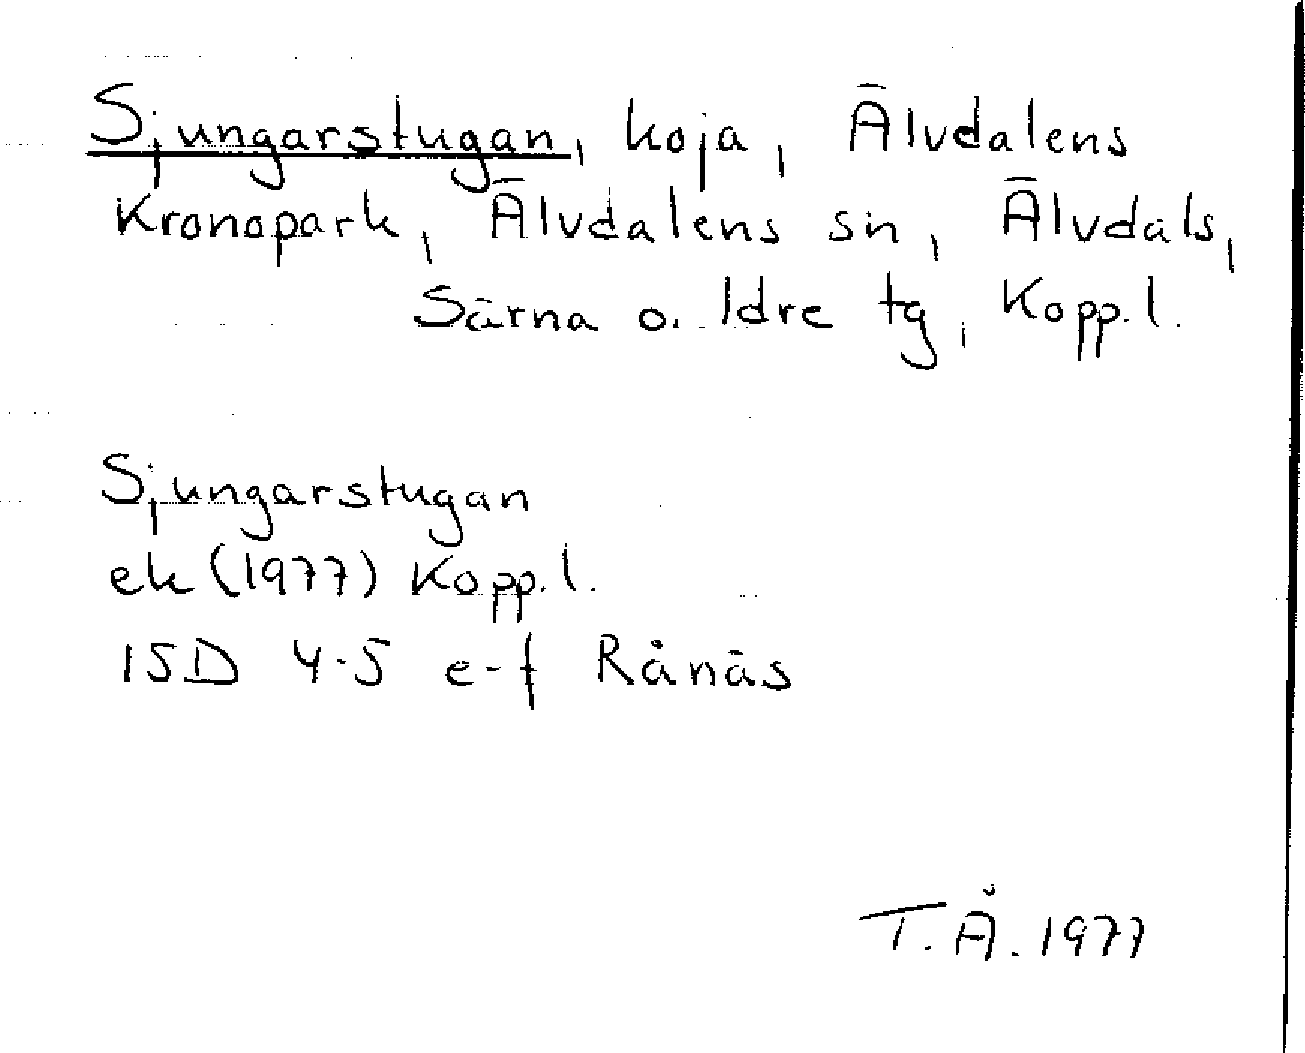 Sjungarstugan, koja, Älvdalens
Kronopark, Älvdalens sn, Älvdals,
Särna o. Idre tg, Kopp.l.
Sjungarstugan
ek (1977) Kopp.l.
15D 4-5 e-f Rånäs
T.Å. 1977